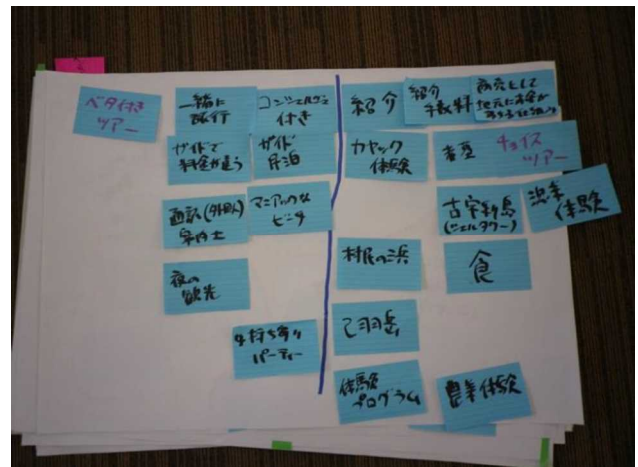 ベタ付き
ツアー
一緒に
旅行
コンシェルジュ
付き
ガイドで
料金が違う
ガイド
民泊
通訳(外国人)
案内士
マニアックな
ビーチ
夜の
観光
持ち寄り
パーティー
紹介
紹介
手数料
商売として
地元にお金が
カヤック
体験
チョイス
ツアー
古宇利島
(シェルタワー)
漁業
体験
村民の浜
食
乙羽岳
体験
プログラム
農業体験